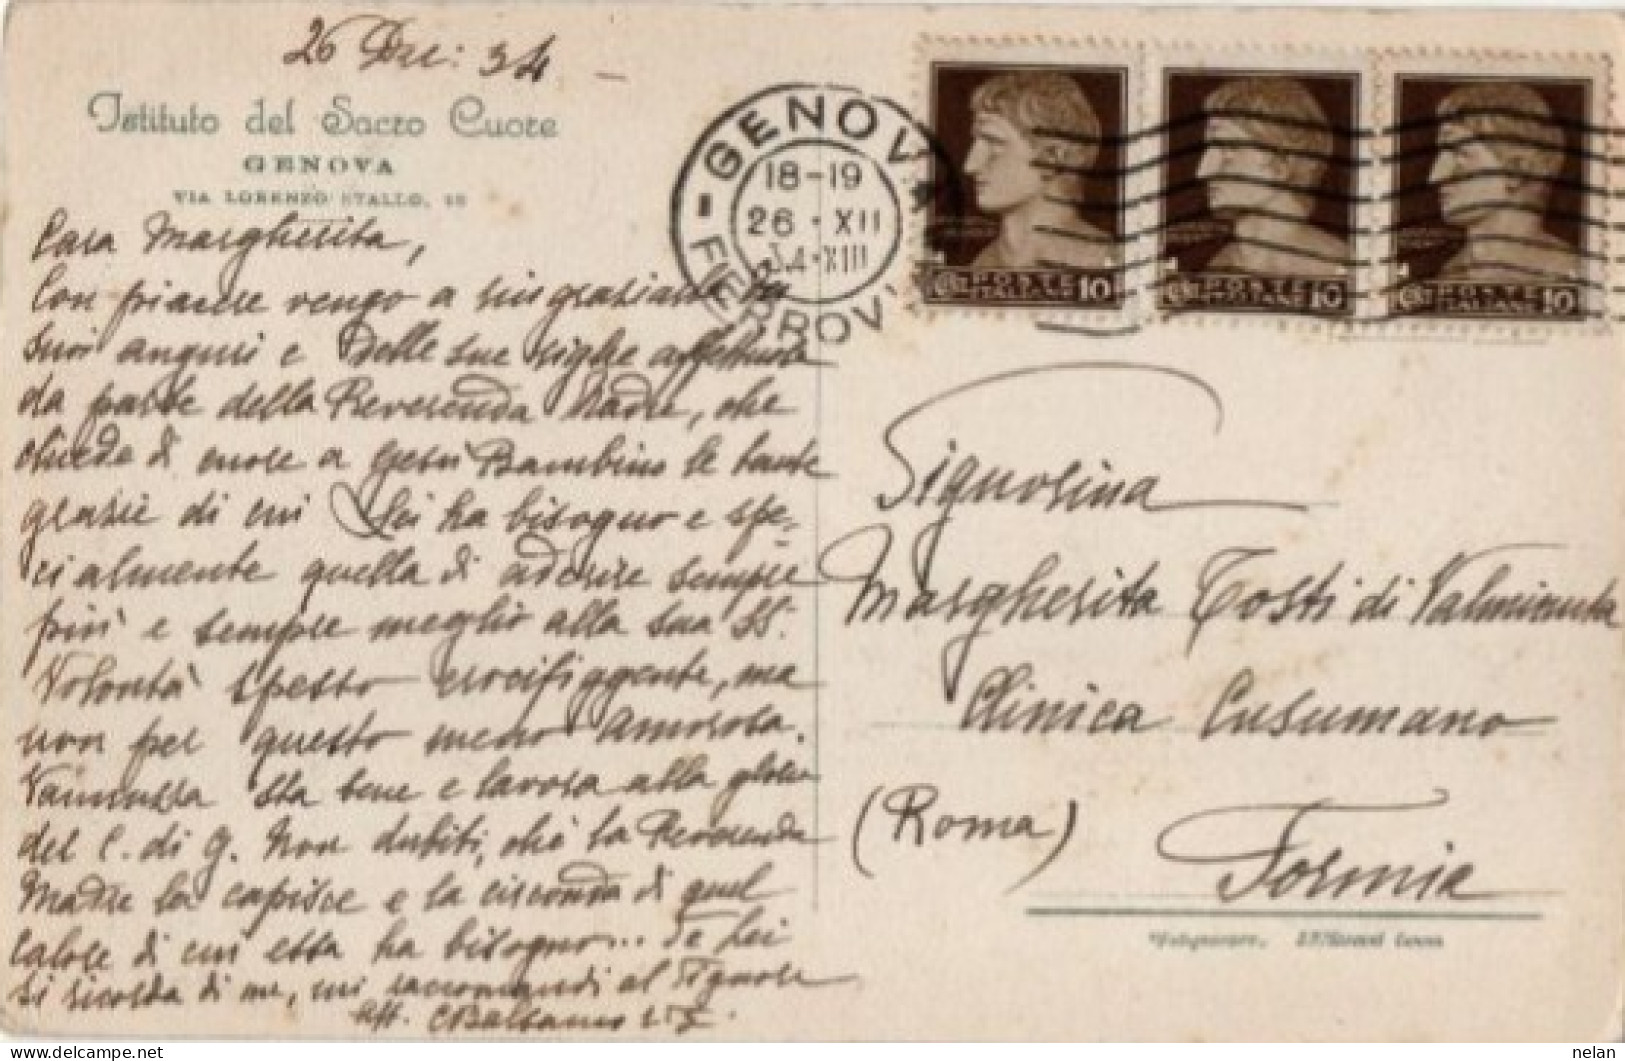 26 Dec: 34 -
Istituto del Sacro Cuore
GENOVA
VIA LORENZO STALLO, 10
Cara Margherita,
Con piacere vengo a ringraziarla dei
suoi auguri e delle sue righe affettuose
da parte della Reverenda Madre, che
chiede di cuore a Gesù Bambino le tante
grazie di cui Lei ha bisogno e spe-
cialmente quella di aderire sempre
più e sempre meglio alla sua SS.
Volontà spesso crocifiggente, ma
non per questo meno amorosa.
Vannuzza sta bene e lavora alla gloria
del C. di G. Non dubiti, chè la Reverenda
Madre la capisce e la circonda di quel
calore di cui essa ha bisogno... Se Lei
si ricorda di me, mi raccomandi al Signore
aff. C Balsamo
GENOVA
18-19
26·XII
34·XIII
FERROV.
POSTE
ITALIANE 10
POSTE
ITALIANE 10
POSTE
ITALIANE 10
Signorina
Margherita Tosti di Valminuta
Clinica Cusumano
(Roma)
Formia
nelan
delcampe.net